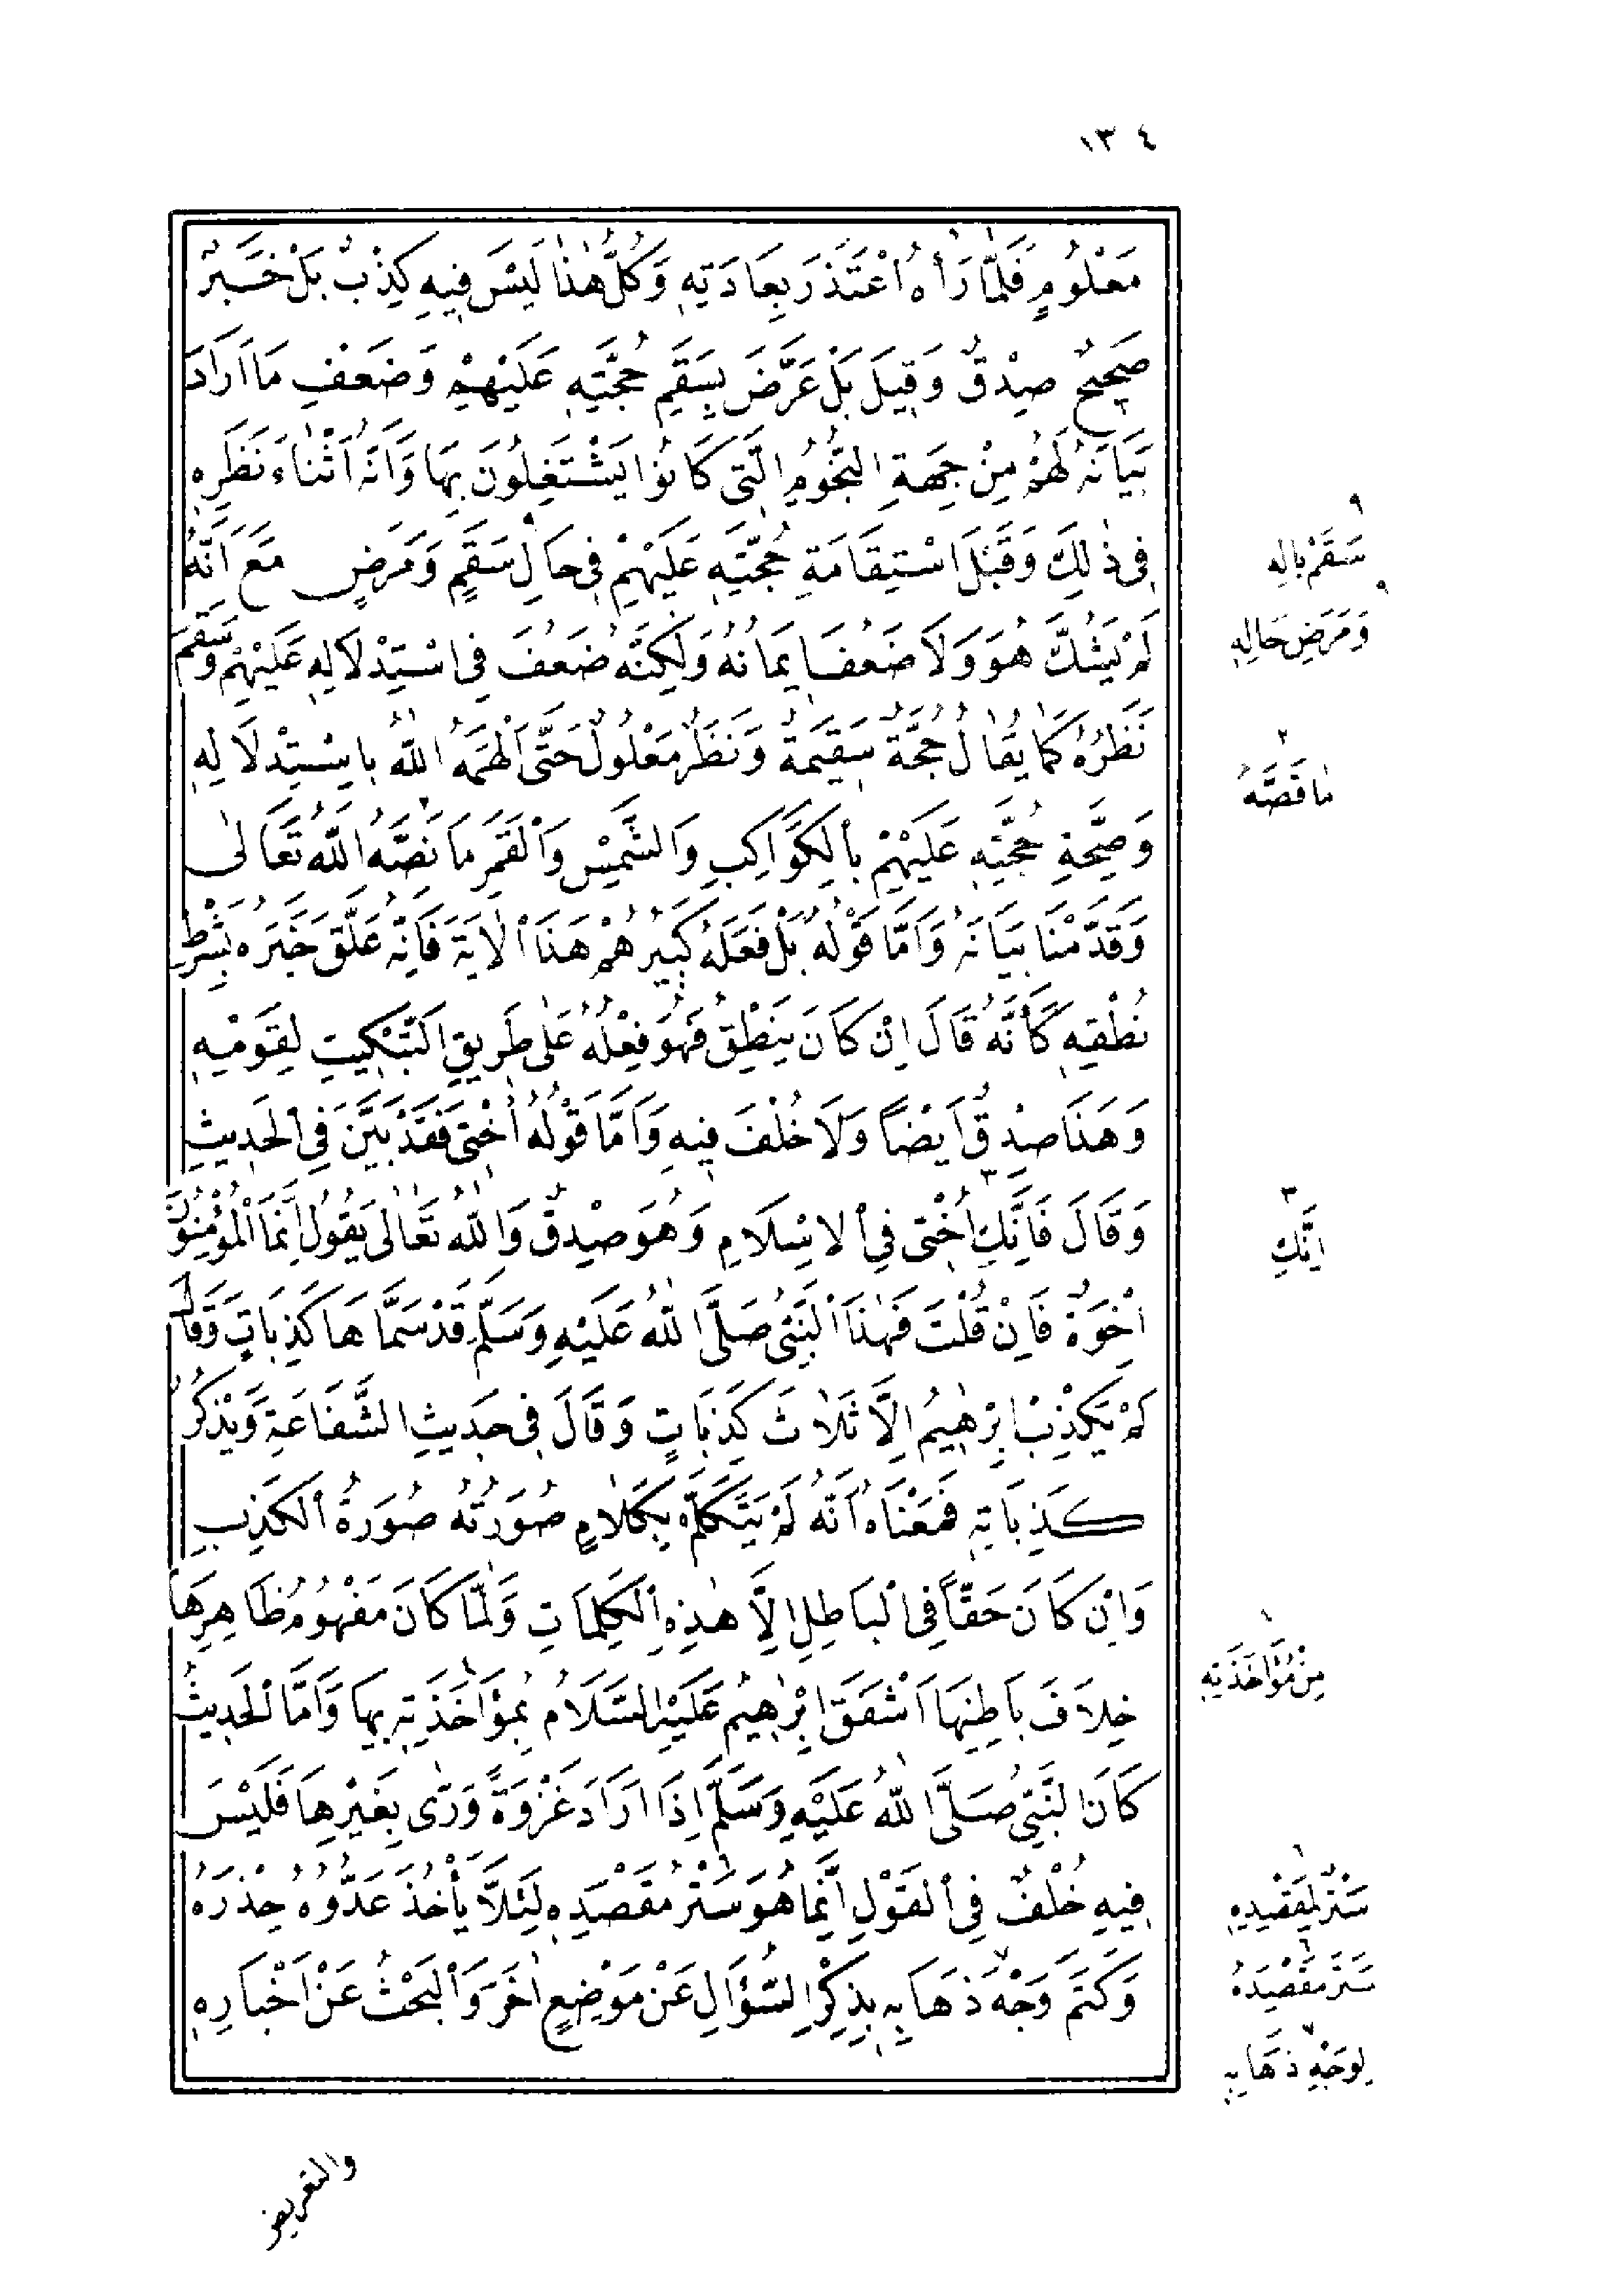 ١٣٤
مَعْلُومٍ فَلَمَّا رَأٰهُ اعْتَذَرَ بِعَادَتِهِ وَكُلُّ هٰذَا لَيْسَ فِيهِ كَذِبٌ بَلْ خَبَرٌ
صَحِيحٌ صِدْقٌ وَقِيلَ بَلْ عَرَّضَ بِسَقَمِ حُجَّتِهِ عَلَيْهِمْ وَضَعْفِ مَا اَرَادَ
بَيَانَهُ لَهُمْ مِنْ جِهَةِ النُّجُومِ الَّتِى كَانُوا يَشْتَغِلُونَ بِهَا وَاَنَّهُ اَثْنَاءَ نَظَرِهِ
فِى ذٰلِكَ وَقَبْلَ اسْتِقَامَةِ حُجَّتِهِ عَلَيْهِمْ فِى حَالِ سَقَمٍ وَمَرَضٍ مَعَ اَنَّهُ
٩
سَقَمْ بالِهِ
٩
وَمَرَضِ حَالِهِ
لَمْ يَشُكَّ هُوَ وَلَا ضَعُفَ اِيمَانُهُ وَلٰكِنَّهُ ضَعُفَ فِى اسْتِدْلَالِهِ عَلَيْهِمْ وَسَقُمَ
نَظَرُهُ كَمَا يُقَالُ حُجَّةٌ سَقِيمَةٌ وَنَظَرٌ مَعْلُولٌ حَتَّى اَلْهَمَهُ اللّٰهُ بِاسْتِدْلَالِهِ
٢
مَا قَصَّهُ
وَصِحَّةِ حُجَّتِهِ عَلَيْهِمْ بِالْكَوَاكِبِ وَالشَّمْسِ وَالْقَمَرِ مَا نَصَّهُ اللّٰهُ تَعَالٰى
وَقَدَّمْنَا بَيَانَهُ وَاَمَّا قَوْلُهُ بَلْ فَعَلَهُ كَبِيرُهُمْ هَذَا الْاٰيَةَ فَاِنَّهُ عَلَّقَ خَبَرَهُ بِشَرْطِ
نُطْقِهِ كَاَنَّهُ قَالَ اِنْ كَانَ يَنْطِقُ فَهُوَ فِعْلُهُ عَلٰى طَرِيقِ التَّبْكِيتِ لِقَوْمِهِ
وَهَذَا صِدْقٌ اَيْضًا وَلَا خُلْفَ فِيهِ وَاَمَّا قَوْلُهُ اُخْتِى فَقَدْ بَيَّنَ فِى الْحَدِيثِ
وَقَالَ فَاِنَّكِ اُخْتِى فِى الْاِسْلَامِ وَهُوَ صِدْقٌ وَاللّٰهُ تَعَالٰى يَقُولُ اِنَّمَا الْمُؤْمِنُونَ
٣
اِنَّكِ
اِخْوَةٌ فَاِنْ قُلْتَ فَهٰذَا النَّبِىُّ صَلَّى اللّٰهُ عَلَيْهِ وَسَلَّمَ قَدْ سَمَّاهَا كَذِبَاتٍ وَقَالَ
لَمْ يَكْذِبْ اِبْرٰهِيمُ اِلَّا ثَلَاثَ كَذَبَاتٍ وَقَالَ فِى حَدِيثِ الشَّفَاعَةِ وَيَذْكُرُ
كَذِبَاتِهِ فَمَعْنَاهُ اَنَّهُ لَمْ يَتَكَلَّمْ بِكَلَامٍ صُورَتُهُ صُورَةُ الْكَذِبِ
وَاِنْ كَانَ حَقًّا فِى الْبَاطِنِ اِلَّا هٰذِهِ الْكَلِمَاتِ وَلَمَّا كَانَ مَفْهُومُ ظَاهِرِهَا
خِلَافَ بَاطِنِهَا اَشْفَقَ اِبْرٰهِيمُ عَلَيْهِ السَّلَامُ بِمُؤَاخَذَتِهِ بِهَا وَاَمَّا الْحَدِيثُ
١
مِنْ مُؤَاخَذَتِهِ
كَانَ النَّبِىُّ صَلَّى اللّٰهُ عَلَيْهِ وَسَلَّمَ اِذَا اَرَادَ غَزْوَةً وَرّٰى بِغَيْرِهَا فَلَيْسَ
فِيهِ خُلْفٌ فِى الْقَوْلِ اِنَّمَا هُوَ سَتْرُ مَقْصَدِهِ لِئَلَّا يَأْخُذَ عَدُوُّهُ حِذْرَهُ
٦
سَتْرٌ لِمَقْصِدِهِ
٦
سَتَرَ مَقْصِدَهُ
وَكَتَمَ وَجْهَ ذَهَابِهِ بِذِكْرِ السُّؤَالِ عَنْ مَوْضِعٍ اٰخَرَ وَالْبَحْثُ عَنْ اَخْبَارِهِ
٧
لِوَجْهِ ذَهَابِهِ
والتعريض